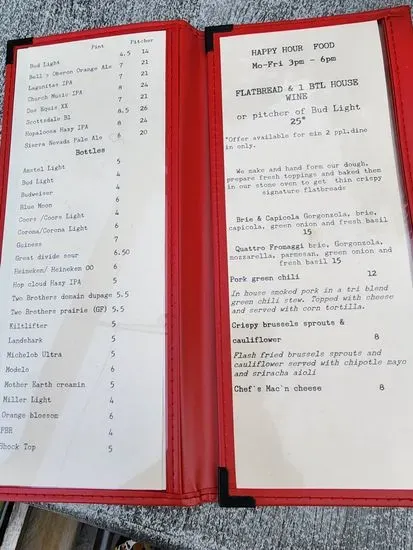 Pint Pitcher
Bud Light 4.5 14
Bell's Oberon Orange Ale 7 21
Lagunitas IPA 7 21
Church Music IPA 8 24
Dos Equis XX 7 21
Scottsdale Bl 8.5 26
Hopaloosa Hazy IPA 8 24
Sierra Nevada Pale Ale 6 20
Bottles
Amstel Light 5
Bud Light 4
Budweiser 4
Blue Moon 6
Coors /Coors Light 4
Corona/Corona Light 6
Guiness 7
Great divide sour 6.50
Heineken/ Heineken 00 6
Hop cloud Hazy IPA 5
Two Brothers domain dupage 5.5
Two Brothers prairie (GF) 5.5
Kiltlifter 5
Landshark 5
Michelob Ultra 5
Modelo 6
Mother Earth creamin 5
Miller Light 4
Orange blossom 6
PBR 4
Shock Top 5
HAPPY HOUR FOOD
Mo-Fri 3pm - 6pm
FLATBREAD & 1 BTL HOUSE
WINE
or pitcher of Bud Light
25*
*Offer available for min 2 ppl.dine
in only.
We make and hand form our dough,
prepare fresh toppings and baked them
in our stone oven to get thin crispy
signature flatbreads
Brie & Capicola Gorgonzola, brie,
capicola, green onion and fresh basil
15
Quattro Fromaggi brie, Gorgonzola,
mozzarella, parmesan, green onion and
fresh basil 15
Pork green chili 12
In house smoked pork in a tri blend
green chili stew. Topped with cheese
and served with corn tortilla.
Crispy brussels sprouts &
cauliflower 8
Flash fried brussels sprouts and
cauliflower served with chipotle mayo
and sriracha aioli
Chef's Mac'n cheese 8